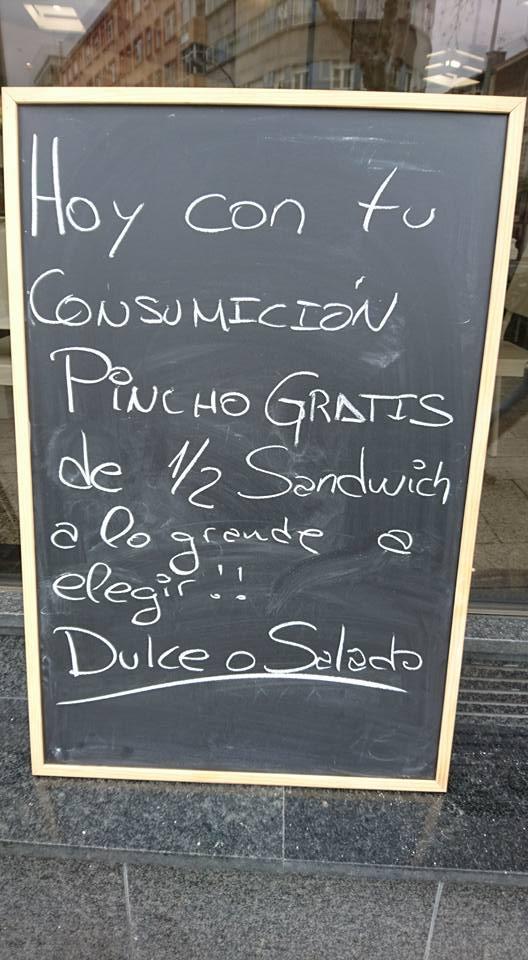 Hoy con tu
CONSUMICIÓN
PINCHO GRATIS
de 1/2 Sandwich
a lo grande a
elegir!!
DULCE o Salado